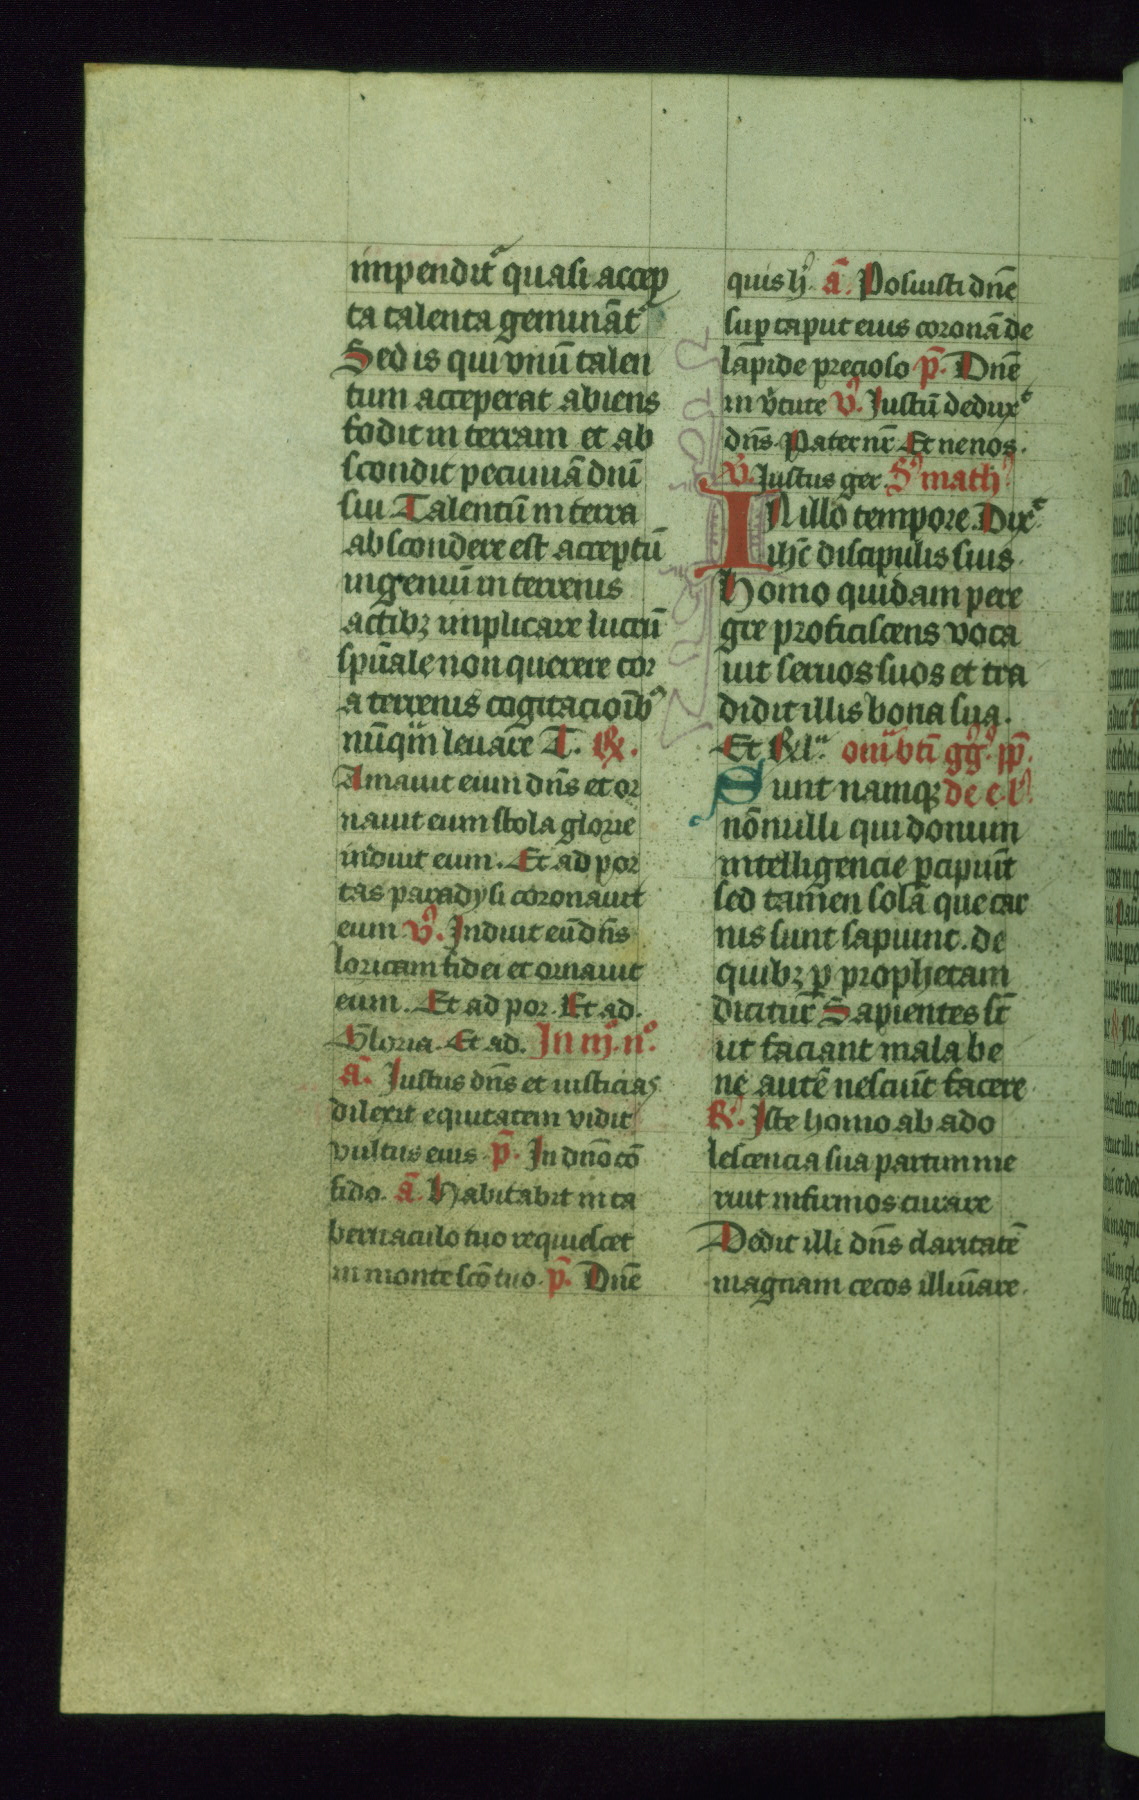 impendit᷑ quasi accep
ta talenta geminãt᷑
Sed is qui vnũ talen
tum acceperat abiens
fodit in terram et ab
scondit pecuniã dnĩ
sui Talentũ in terra
abscondere est acceptũ
ingeniũ in terrenis
actibꝫ implicare lucrũ
spũale non querere cor
a terrenis cogitacioĩbꝰ
nũqᷓm leuare T. ꝶ.
Amauit eum dns̃ et or
nauit eum stola glorie
induit eum. Et ad por
tas paradysi coronauit
eum ꟟. Induit eũ dns̃
loricam fidei et ornauit
eum. Et ad por. Et ad.
Gloria. Et ad. In iij. nº.
ã. Iustus dns̃ et iusticias
dilexit equitatem vidit
vultus eius p̃. In dnõ cõ
fido. ã. Habitabit in ta
bernaculo tuo requiescet
in monte scõ tuo. p̃. Dnẽ
quis hꝰ. ã. Posuisti dnẽ
suꝑ caput eius coronã de
lapide precioso p̃. Dnẽ
in v̾tute ꟟. Iustũ dedux᷑
dns̃. Pater nr̃ Et ne nos.
꟟. Iustus ger. Sꝫ math̾
IN illo tempore. Dix᷑
ihc̃ discipulis suis.
Homo quidam pere
gre proficiscens voca
uit seruos suos et tra
didit illis bona sua.
Et Relᷓ. omĩ bt̃i gg̾. pp̃.
Sunt namqꝫ de e. l̾.
nõnulli qui donum
intelligencie ꝑcipiũt
sed tam̃en solã que car
nis sunt sapiunt. de
quibꝫ ꝑ prophetam
dicitur Sapientes st̃
ut faciant mala be
ne autẽ nesciũt facere
ꝶ. Iste homo ab ado
lescencia sua partim me
ruit infirmos curare
Dedit illi dns̃ claritatẽ
magnam cecos illuĩare.